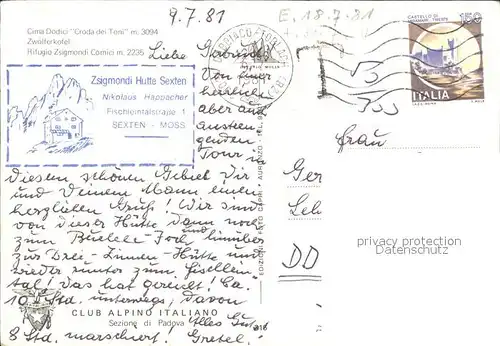 9.7.81
E. 18.7.81
Cima Dodici "Croda dei Toni" m. 3094
Zwölferkofel
Rifugio Zsigmondi Comici m. 2235
CASTELLO DI
MIRAMARE - TRIESTE
150
ITALIA
Zsigmondi Hutte Sexten
Nikolaus Happacher
Fischleintalstraße 1
SEXTEN - MOSS
Liebe
Von einer
herrlichen
aber auch
anstren
genden
Tour in
diesem schönen Gebiet Dir
und Deinem Mann einen
herzlichen Gruß! Wir sind
von dieser Hütte dann noch
zum Büllele-Joch und hinüber
zur Drei-Zinnen-Hütte und
wieder runter zum
tal! Das hat gereicht! Ca.
10 Std. unterwegs, davon
8 Std. marschiert! Gretel.
Alles Gute
CLUB ALPINO ITALIANO
Sezione di Padova
EDIZIONI FOTO GHEDINA
Frau
Ger
DD
privacy protection
Datenschutz